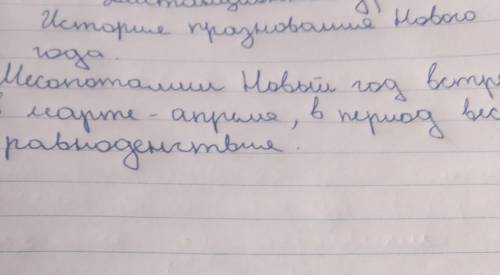 История празнования Нового
года.
Месопотамии Новый год встре
марте - апреле, в период вес
равноденствия.